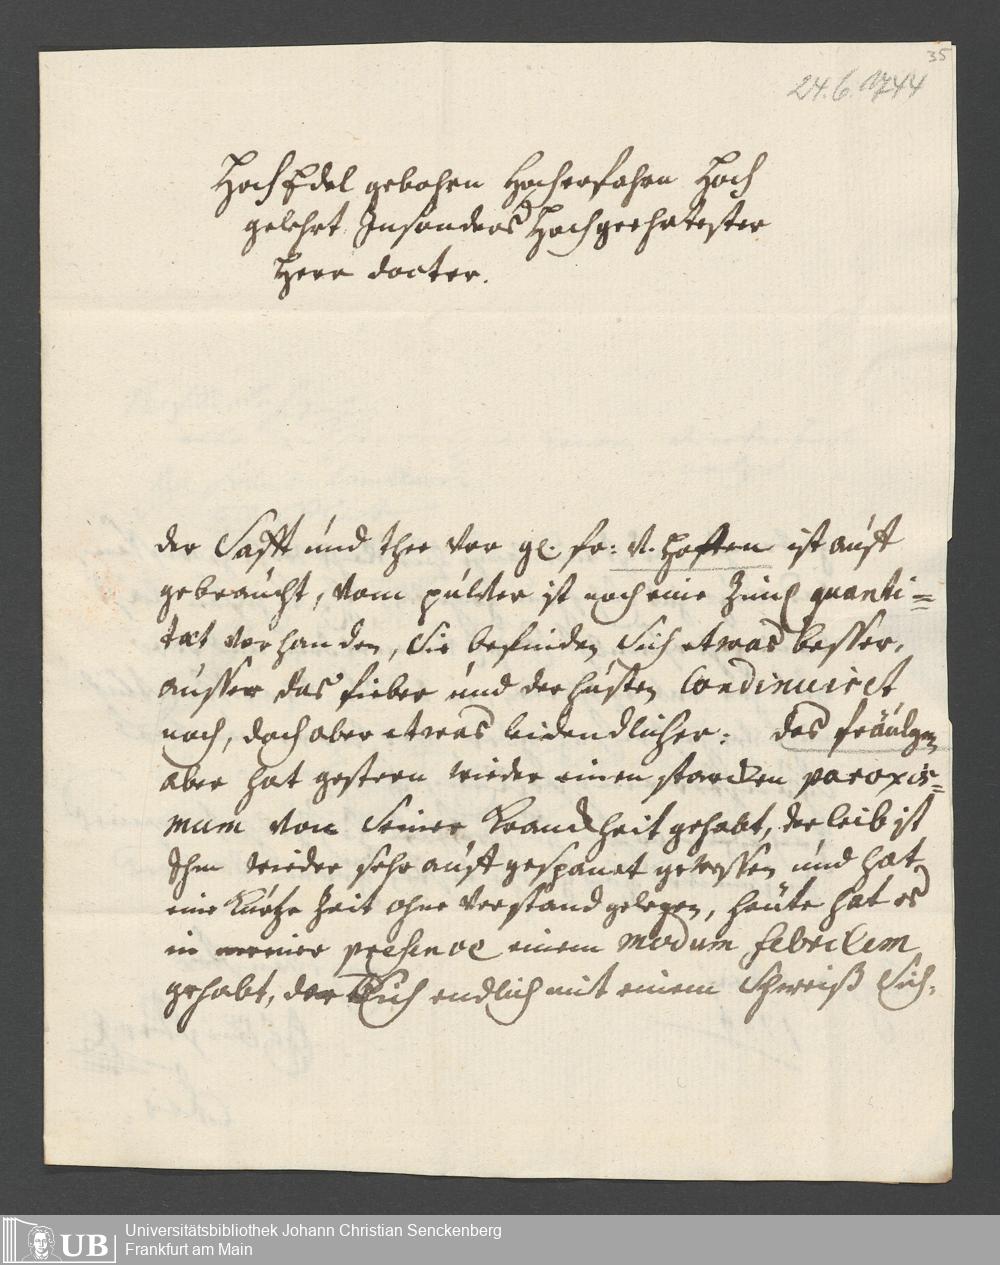 35
24.6.1744
Hoch Edel gebohrn Hocherfahrn Hoch
gelehrt Insonders Hochgeehrtester
Herr docter.
der Safft und thee vor gl. fr: v. Hoften ist auff
gebraucht, vom pulver ist noch eine Zimл quanti=
tæt vorhanden, Sie befinden Sich etwas besser,
ausser das fieber und der husten Condinuiret
noch, doch aber etwas leidendlicher: das fräulgen
aber hat gestern wieder einen starcken paroxis=
mum von Seiner Kranckheit gehabt, der leib ist
Ihm wieder sehr auff gespannt gewessen und hat
eine Kurtze Zeit ohne Verstand gelegen, heüte hat es
in meiner presence einem modum febrilem
gehabt, der Sich endlich mit einem Schweiß Sich.
UB
Universitätsbibliothek Johann Christian Senckenberg
Frankfurt am Main